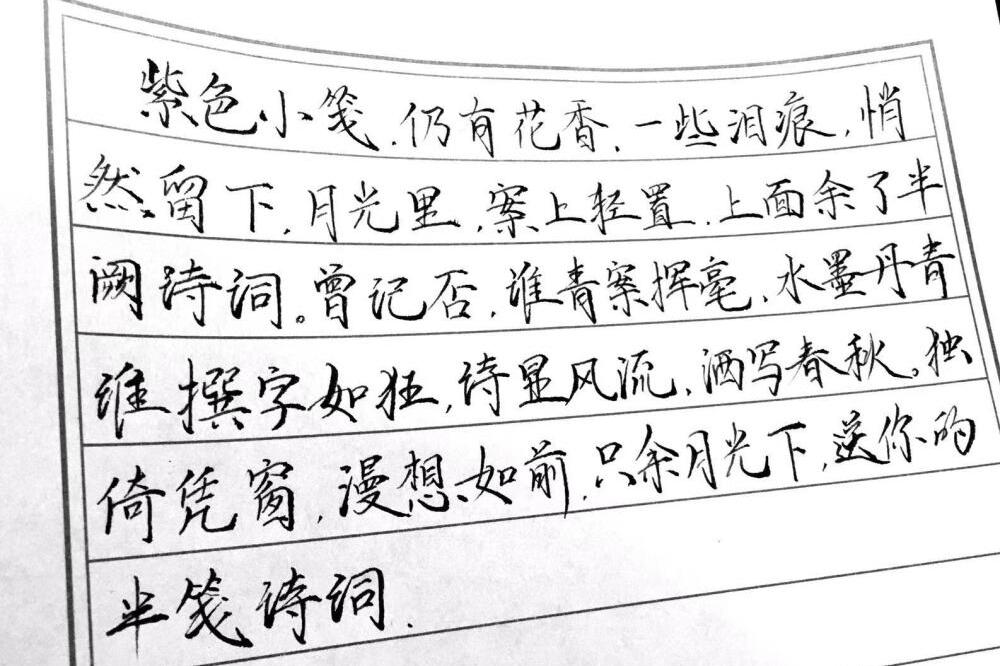 紫色小笺,仍有花香,一些泪痕,悄
然留下,月光里,案上轻置,上面余了半
阙诗词。曾记否,谁青案挥毫,水墨丹青
谁撰字如狂,诗显风流,洒写春秋。独
倚凭窗,漫想如前,只余月光下,送你的
半笺诗词.